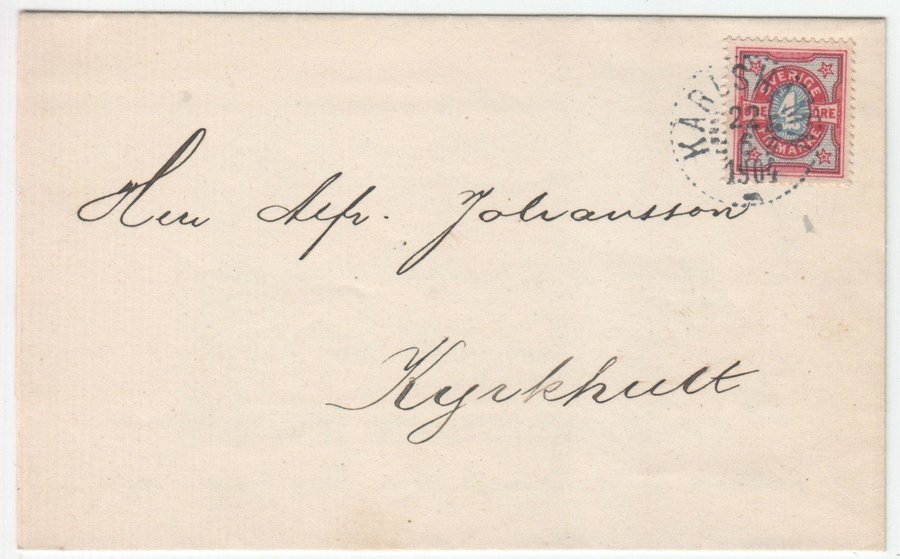 SVERIGE
4
ÖRE
FRIMÄRKE
KARLS
22
1904
Herr Alfr. Johansson
Kyrkhult